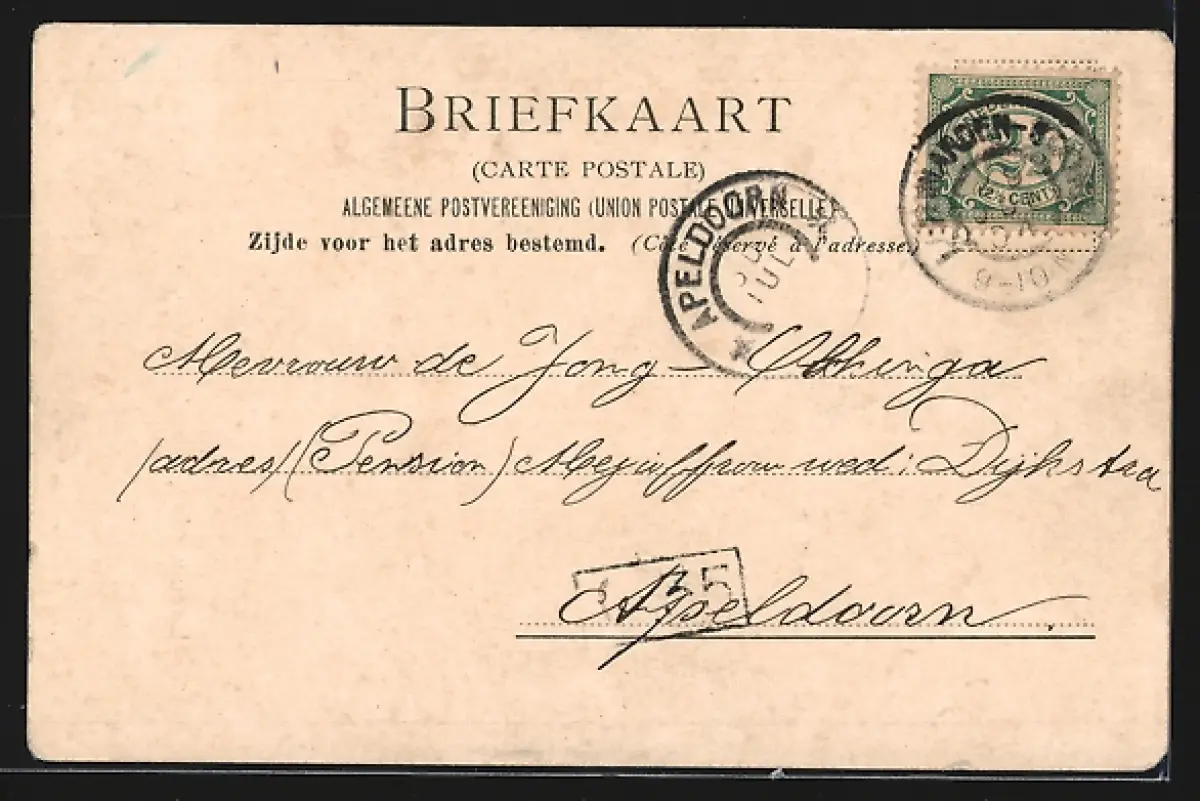 BRIEFKAART
(CARTE POSTALE)
ALGEMEENE POSTVEREENIGING (UNION POSTALE UNIVERSELLE)
Zijde voor het adres bestemd. (Côté réservé à l'adresse.)
2½ CENT
9-10
APELDOORN
JUL
Mevrouw de Jong-
(adres) (Pension) Mejuffrouw wed: Dijkstra
Apeldoorn.